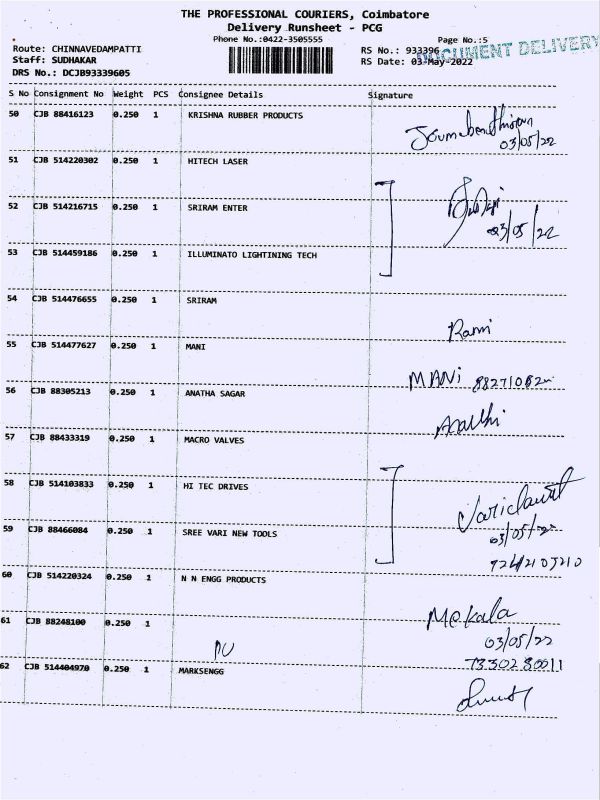 THE PROFESSIONAL COURIERS, Coimbatore
Delivery Runsheet - PCG
Phone No.:0422-3505555
Page No.:5
Route: CHINNAVEDAMPATTI
RS No.: 933396
DOCUMENT DELIVERY
Staff: SUDHAKAR
RS Date: 03-May-2022
DRS No.: DCJB93339605
S No Consignment No Weight PCS Consignee Details Signature
50 CJB 88416123 0.250 1 KRISHNA RUBBER PRODUCTS
03/05/22
51 CJB 514220302 0.250 1 HITECH LASER
52 CJB 514216715 0.250 1 SRIRAM ENTER
03/05/22
53 CJB 514459186 0.250 1 ILLUMINATO LIGHTINING TECH
54 CJB 514476655 0.250 1 SRIRAM
Rami
55 CJB 514477627 0.250 1 MANI
MANi
56 CJB 88305213 0.250 1 ANATHA SAGAR
57 CJB 88433319 0.250 1 MACRO VALVES
58 CJB 514103833 0.250 1 HI TEC DRIVES
59 CJB 88466084 0.250 1 SREE VARI NEW TOOLS
03/05/22
60 CJB 514220324 0.250 1 N N ENGG PRODUCTS
61 CJB 88248100 0.250 1
Mekala
03/05/22
62 CJB 514404970 0.250 1 MARKSENGG